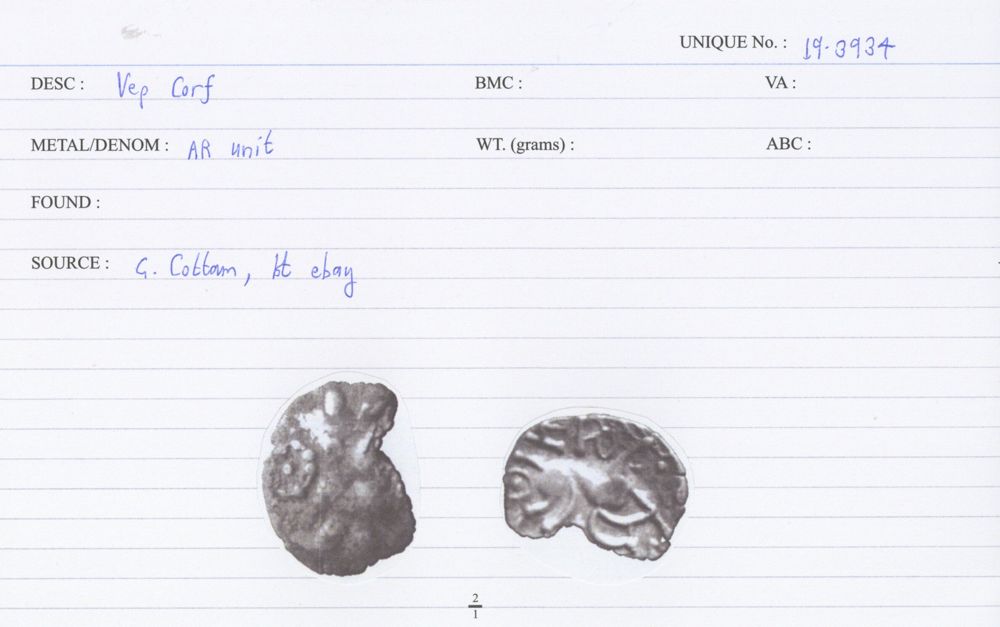 UNIQUE No. : 19.3934
DESC : Vep Corf BMC : VA :
METAL/DENOM : AR unit WT. (grams) : ABC :
FOUND :
SOURCE : G. Cottam, bt ebay
2
1